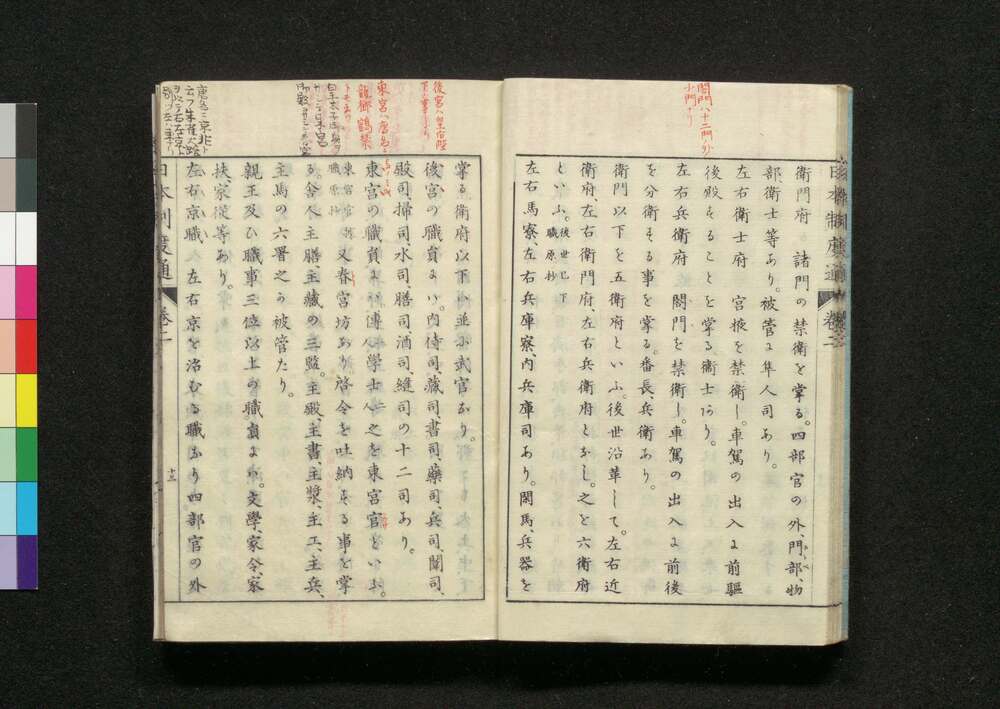 閤門ハ十二門ノ外
小門ナリ
衛門府 諸門の禁衛を掌る。四部官の外、門部、物
部衛士等あり。被管に隼人司あり。
左右衛士府 宮掖を禁衛し。車駕の出入に前驅
後殿することを掌る。衛士あり。
左右兵衛府 閤門を禁衛し。車駕の出入に前後
を分衛する事を掌る。番長、兵衛あり。
衛門以下を五衛府といふ。後世沿革して。左右近
衛府、左右衛門府、左右兵衛府となし。之を六衛府
といふ。後世已下職原抄
左右馬寮、左右兵庫寮、内兵庫司あり。閑馬、兵器を
後宮ハ皇后陛
東宮ハ唐名
龍樓 鶴禁
掌る。衛府以下に並に武官なり。
後宮の職員には。内侍司、藏司、書司、藥司、兵司、闈司、
殿司、掃司、水司、膳司、酒司、縫司の十二司あり。
東宮の職員に。傅一人學士二人之を東宮官といふ。
東宮官
職原抄
又春宮坊あり啓令を吐納する事を掌
る。舎人、主膳、主藏の三監。主殿、主書、主漿、主工、主兵、
主馬の六署之が被管たり。
親王及ひ職事三位以上の職員に。文學、家令、家
扶、家従等あり。
左右京職 左右京を治むる職なり四部官の外
日本制度通 卷二
十三